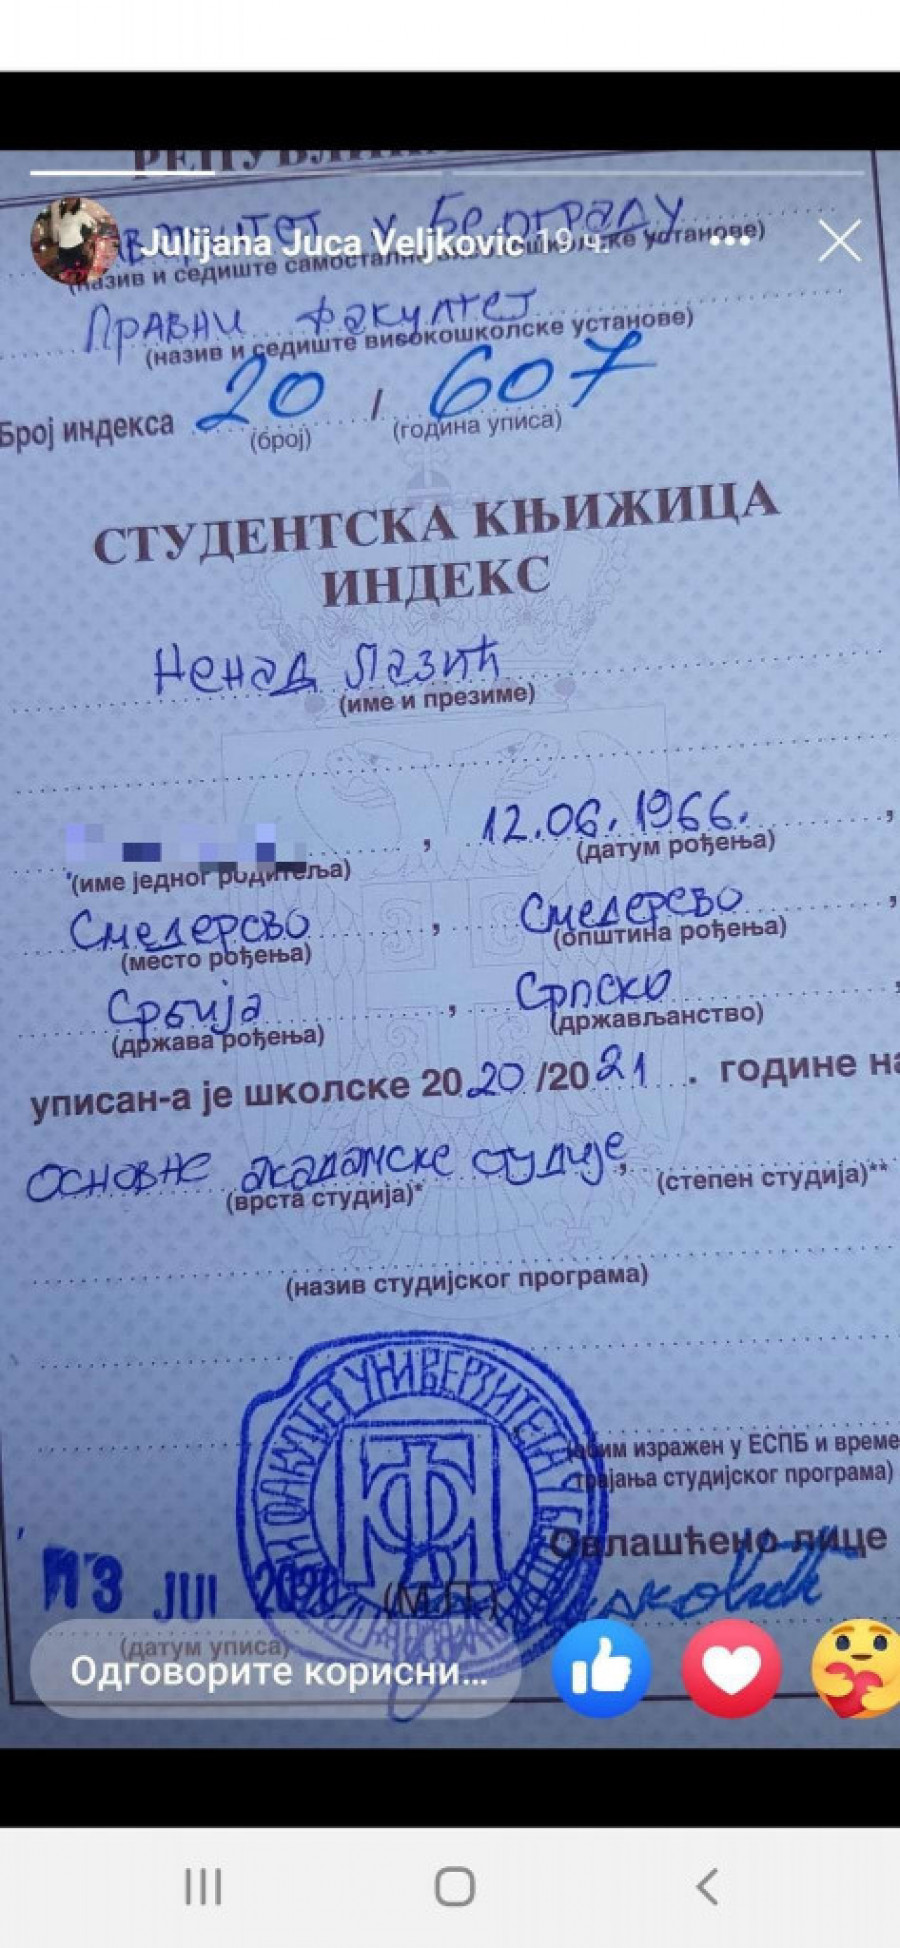 РЕПУБЛИК
Универзитет у Београду
Julijana Juca Veljkovic 19 ч.
(назив и седиште самосталне високошколске установе)
Правни факултет
(назив и седиште високошколске установе)
Број индекса 20 / 607
(број) (година уписа)
СТУДЕНТСКА КЊИЖИЦА
ИНДЕКС
Ненад Лазић
(име и презиме)
, 12.06.1966. ,
(име једног родитеља) (датум рођења)
Смедерево , Смедерево ,
(место рођења) (општина рођења)
Србија , Српско ,
(држава рођења) (држављанство)
уписан-а је школске 2020/2021 . године на
основне академске студије,
(врста студија)* (степен студија)**
(назив студијског програма)
ФАКУЛТЕТ УНИВЕРЗИТЕТА У
(обим изражен у ЕСПБ и време
трајања студијског програма)
Овлашћено лице
13 JUL 2020 (М.П.)
(датум уписа)
Одговорите корисни...